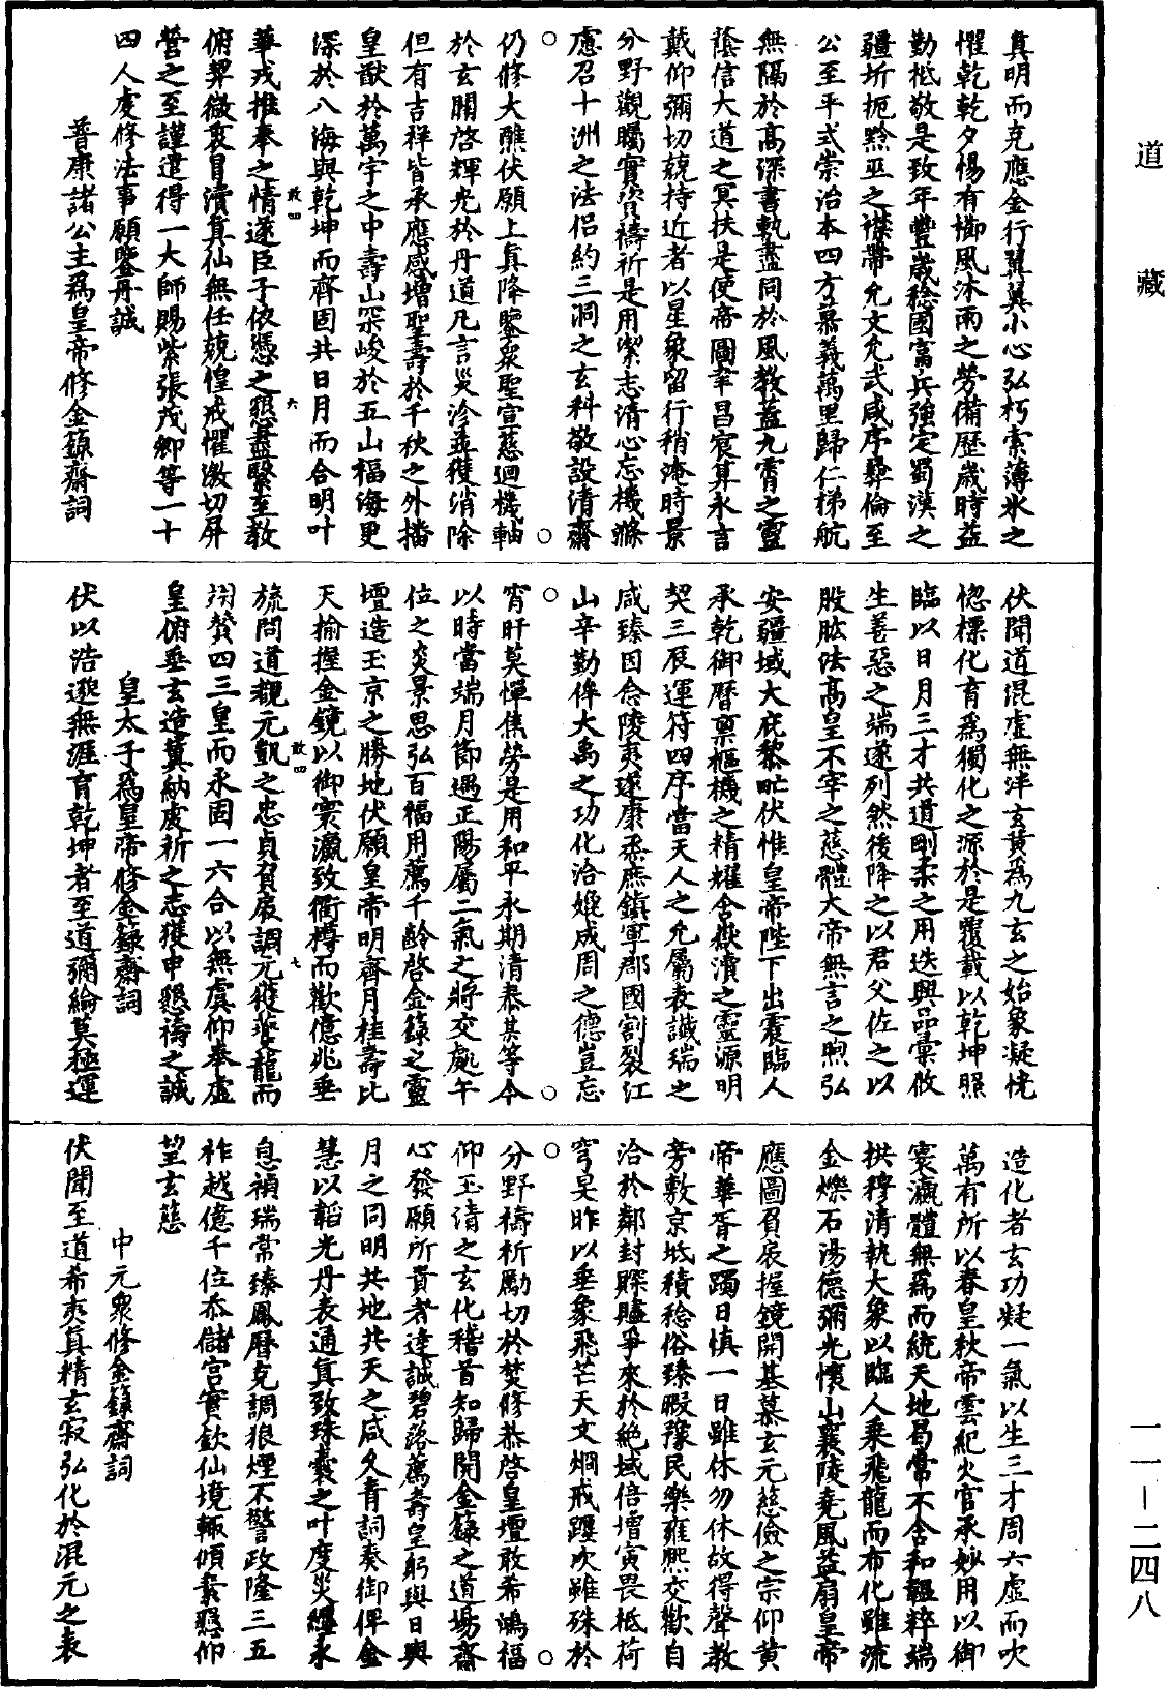 道藏
真明而克應金行翼翼小心弘朽索薄氷之
懼乾乾夕惕有櫛風沐雨之勞備歷歲時益
勤柢敬是致年豐歲稔國富兵強定蜀漢之
疆圻扼黔巫之襟帶允文允武咸序彝倫至
公至平式崇治本四方慕義萬里歸仁梯航
無隔於高深書軌盡同於風教益九霄之靈
蔭信大道之冥扶是使帝圖宰昌宸算永言
戴仰彌切兢持近者以星象留行稍淹時景
分野觀矚實資禱祈是用潔志清心忘機滌
慮召十洲之法侣約三洞之玄科敬設清齋
仍修大醮伏願上真降鑒衆聖宣慈迴機軸
於玄關啓輝光於丹道凡言災沴並獲消除
但有吉祥皆承應感增聖壽於千秋之外播
皇猷於萬宇之中壽山罙峻於五山福海更
深於八海與乾坤而齊固共日月而合明叶
敢四 六
華戎推奉之情遂臣子依憑之懇盡繫至教
俯契微衷冒瀆真仙無任兢惶戒懼激切屏
營之至謹遣得一大師賜紫張茂卿等一十
四人虔修法事願鑒丹誠
普康諸公主爲皇帝修金籙齋詞
伏聞道混虛無泮玄黄爲九玄之始象凝恍
惚標化育爲獨化之源於是覆載以乾坤照
臨以日月三才共道剛柔之用迭興品彙攸
生善惡之端遂列然後降之以君父佐之以
股肱法高皇不宰之慈體大帝無言之煦弘
安疆域大庇黎甿伏惟皇帝陛下出震臨人
承乾御曆稟樞機之精耀含嶽瀆之靈源明
契三辰運符四序當天人之允屬表讖瑞之
咸臻因念陵夷遂康丞庶鎮寧郡國割裂江
山辛勤侔大禹之功化洽媲成周之德豈忘
宵旰莫憚焦勞是用和平永期清泰某等今
以時當端月節遇正陽屬二氣之將交處午
位之炎景思弘百福用薦千齡啓金籙之靈
壇造玉京之勝地伏願皇帝明齊月桂壽比
天揄握金鏡以御寰瀛致衢樽而歡億兆垂
敢四 七
旒問道觀元凱之忠貞負扆調元縱夔龍而
翊贊四三皇而永固一六合以無虞仰奉虛
皇俯垂玄造冀納虔祈之志獲申懇禱之誠
皇太子爲皇帝修金籙齋詞
伏以浩邈無涯育乾坤者至道彌綸莫極運
造化者玄功凝一氣以生三才周六虛而吹
萬有所以春皇秋帝雲紀火官承妙用以御
寰瀛體無爲而統天地曷嘗不含和韞粹端
拱穆清執大象以臨人乘飛龍而布化雖流
金爍石湯德彌光懷山襄陵堯風益扇皇帝
應圖負扆握鏡開基慕玄元慈儉之宗仰黄
帝華胥之躅日慎一日雖休勿休故得聲教
旁敷京坻積稔俗臻暇豫民樂雍熙交歡自
洽於鄰封賝贐爭來於絶域倍增寅畏柢荷
穹旻昨以垂象飛芒天文烱戒躔次雖殊於
分野禱祈勵切於焚修恭啓皇壇敢希鴻福
仰玉清之玄化稽首知歸開金籙之道場齋
心發願所貴者達誠碧落薦壽皇躬與日與
月之同明共地共天之咸久青詞奏御俾金
慧以韜光丹表通真致珠囊之叶度災纏永
息禎瑞常臻鳳曆克調狼煙不警政隆三五
祚越億千位忝儲宮實欽仙境輒傾素懇仰
望玄慈
中元衆修金籙齋詞
伏聞至道希夷真精玄寂弘化於混元之表
一一—二四八